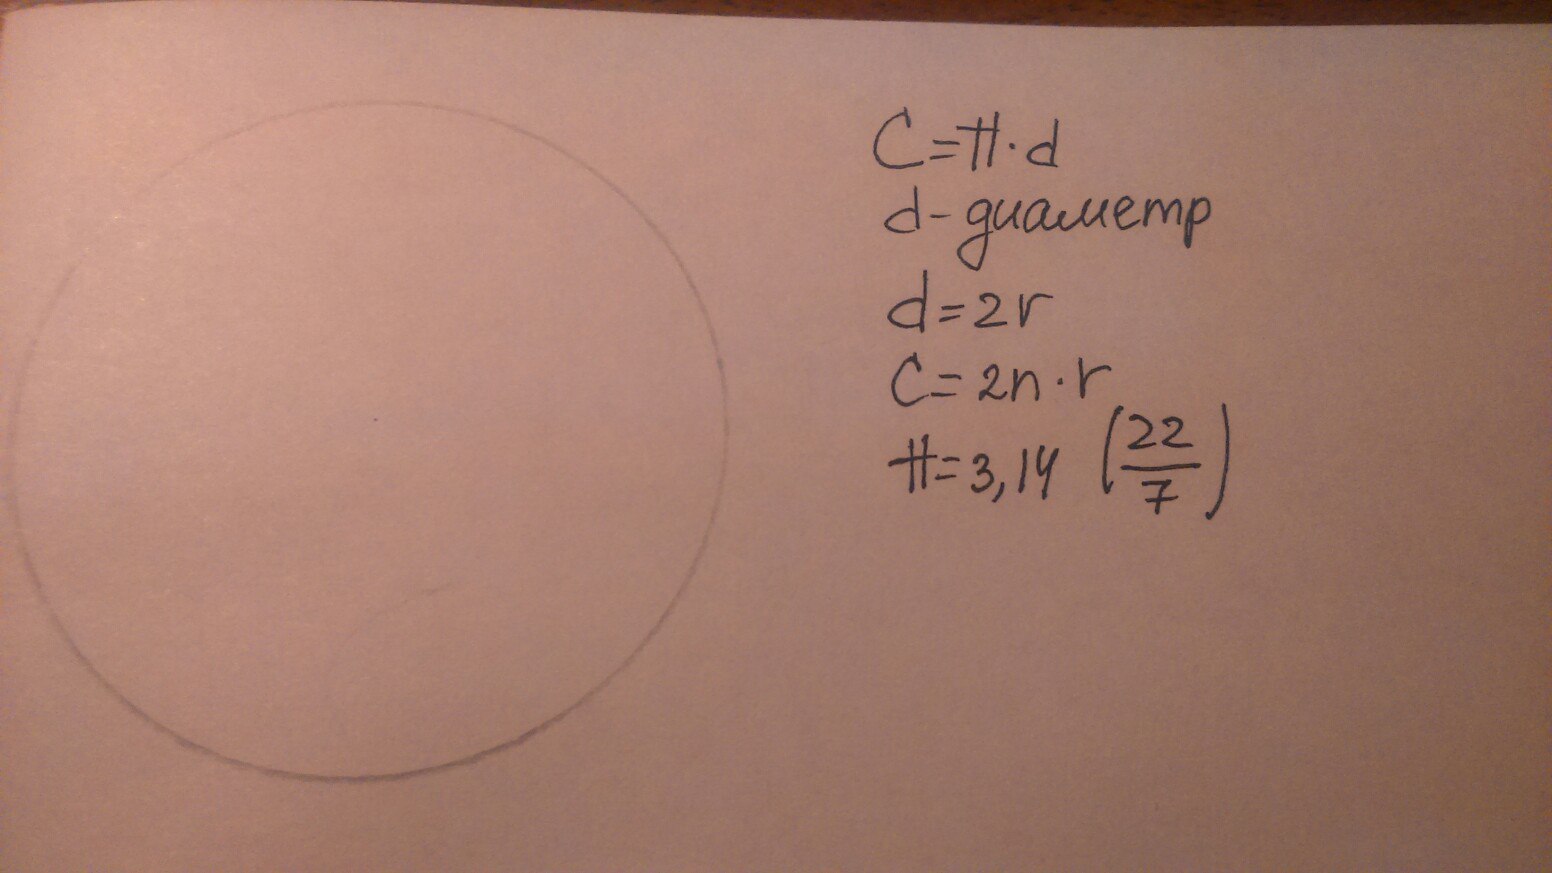 C=π·d
d-диаметр
d=2r
C=2п·r
π=3,14 (22/7)